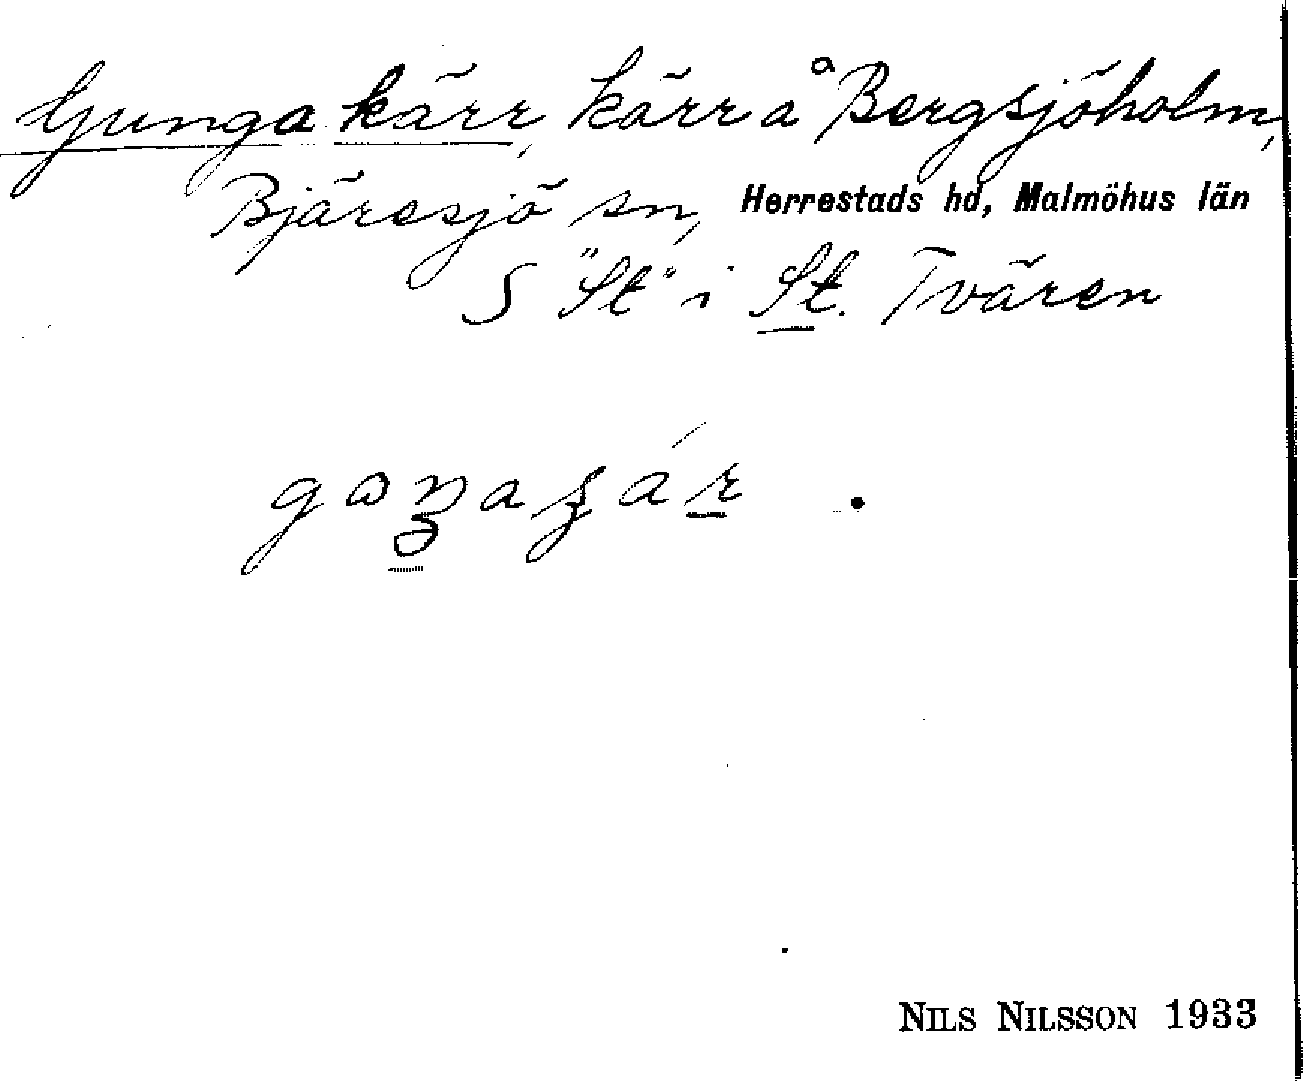 Gungakärr, kärr å Bergsjöholm,
Bjäresjö sn, Herrestads hd, Malmöhus län
S "St" i St. Tvären
NILS NILSSON 1933